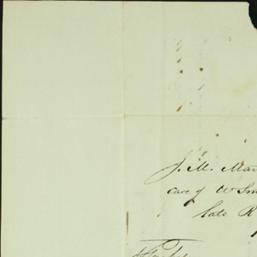 J. M. Mar
care of W Sm
late R